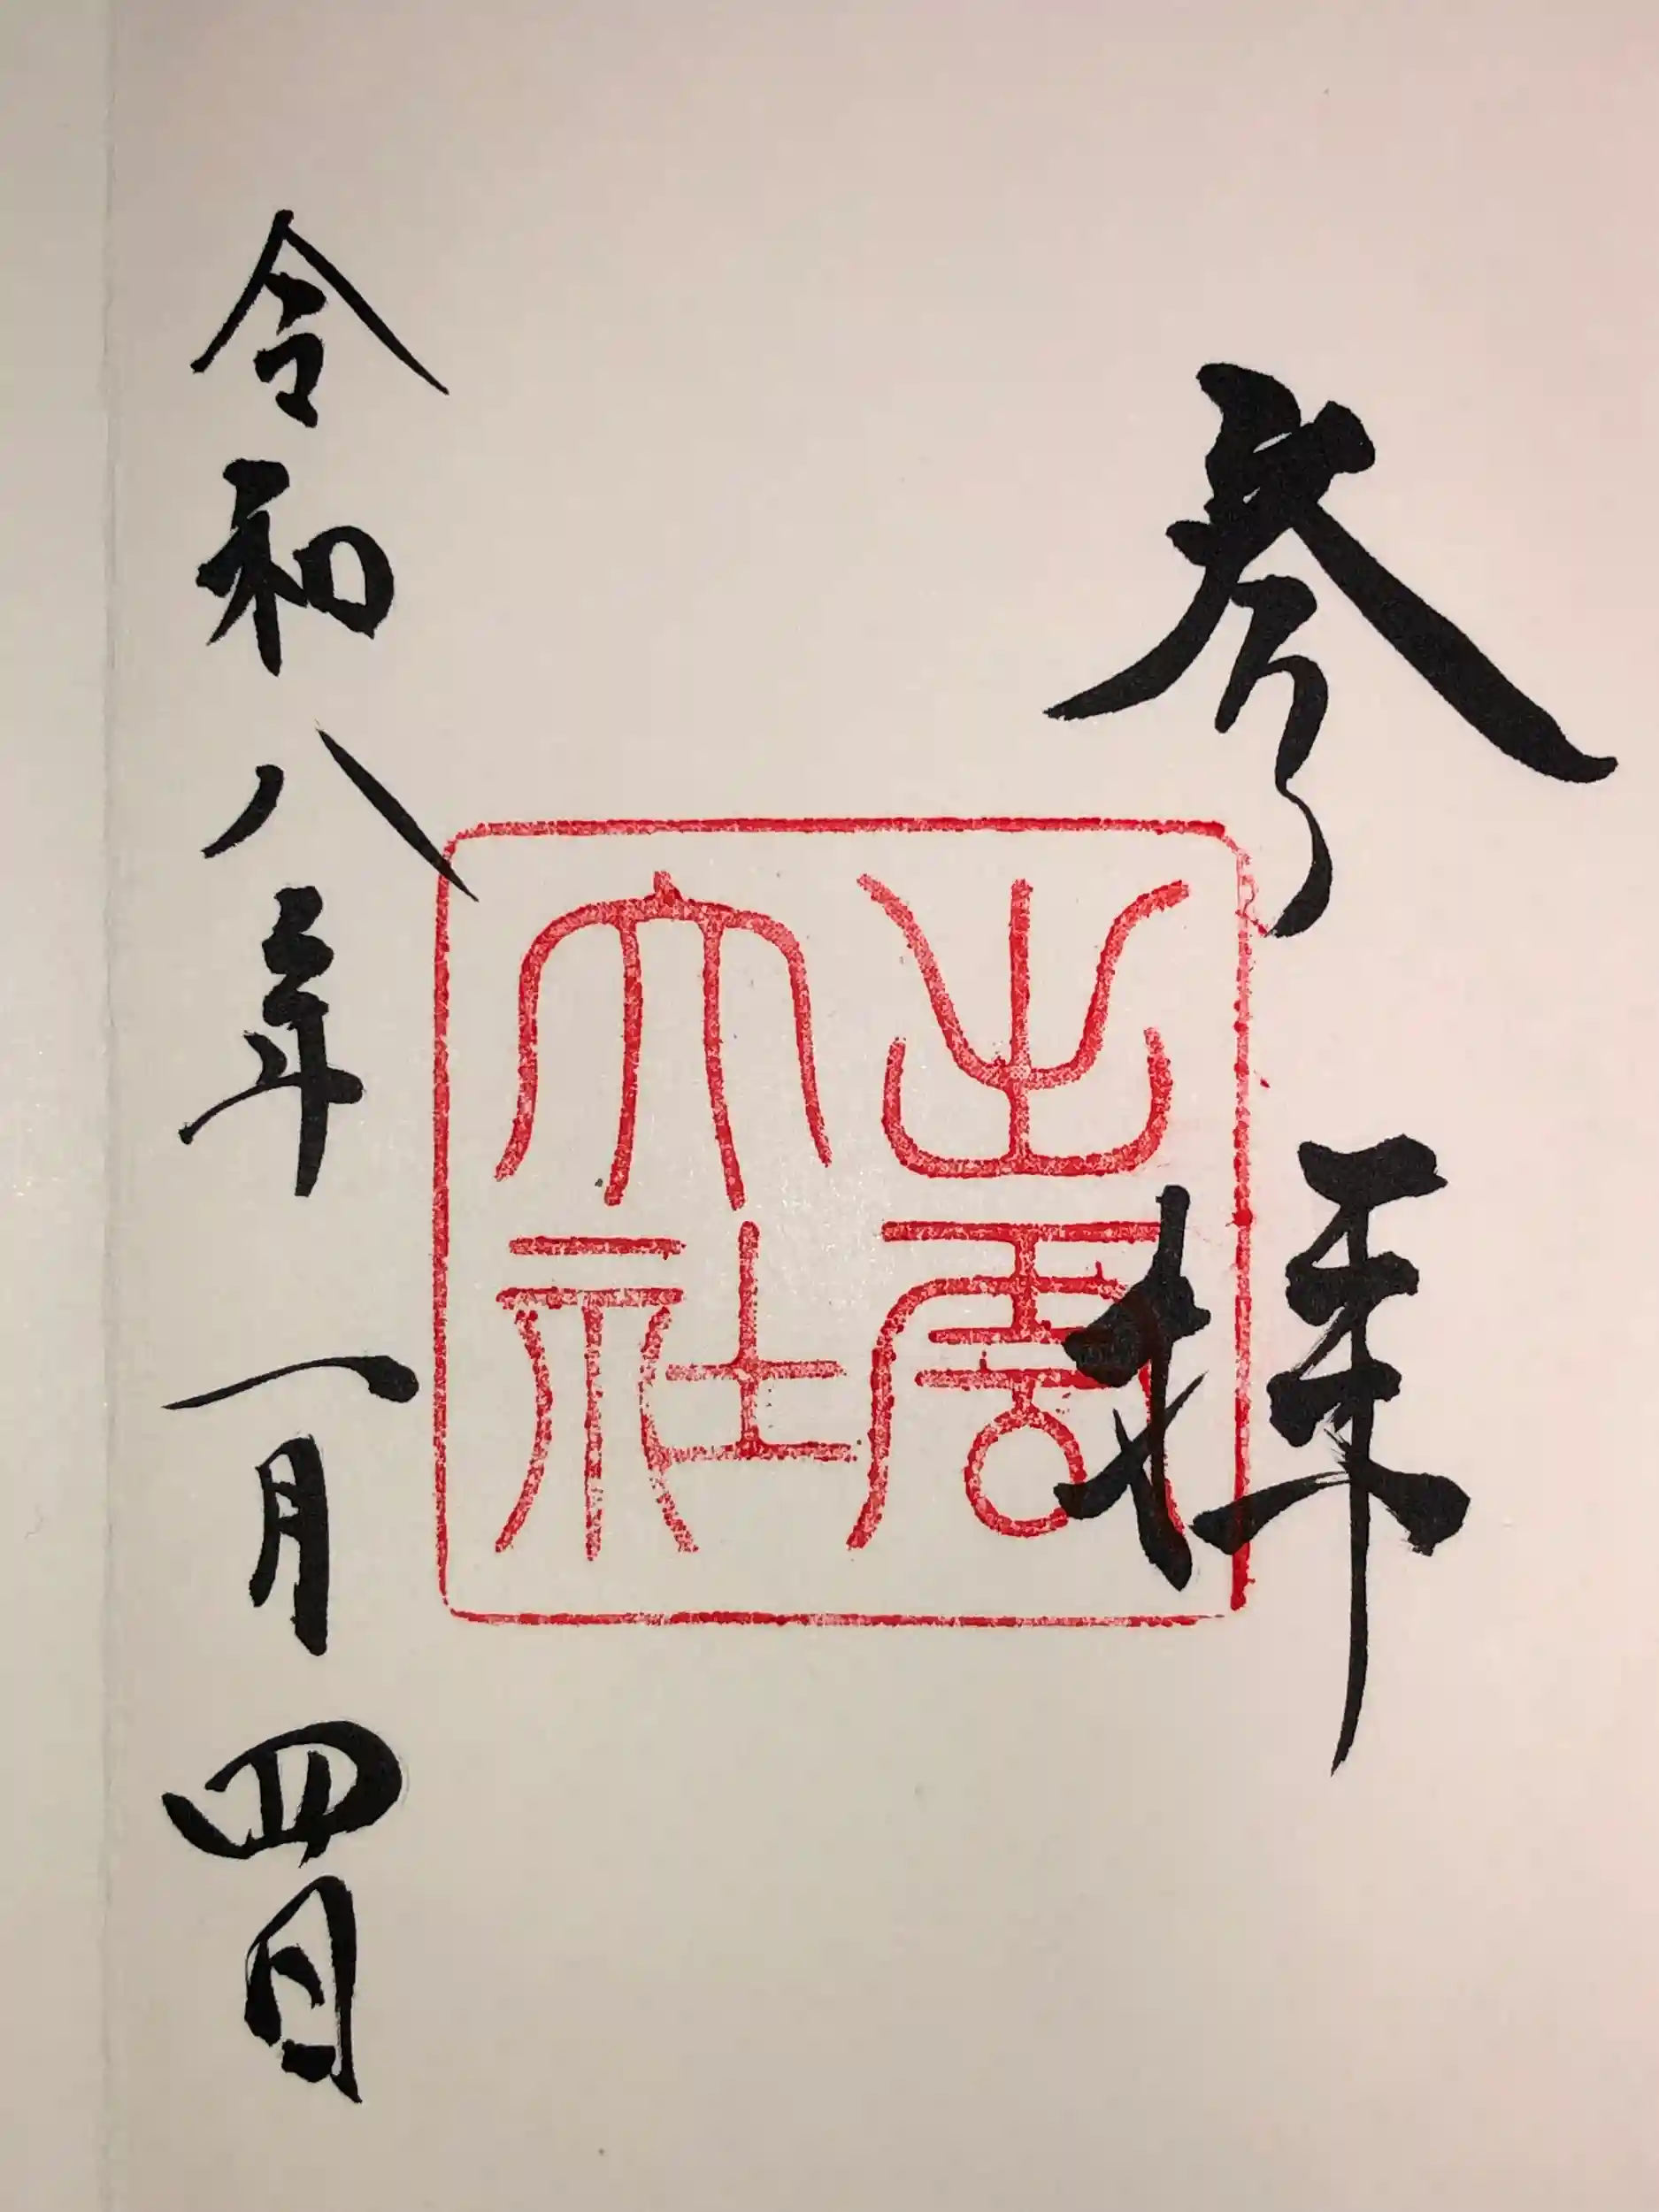 参拝
出雲
大社
令和八年一月四日